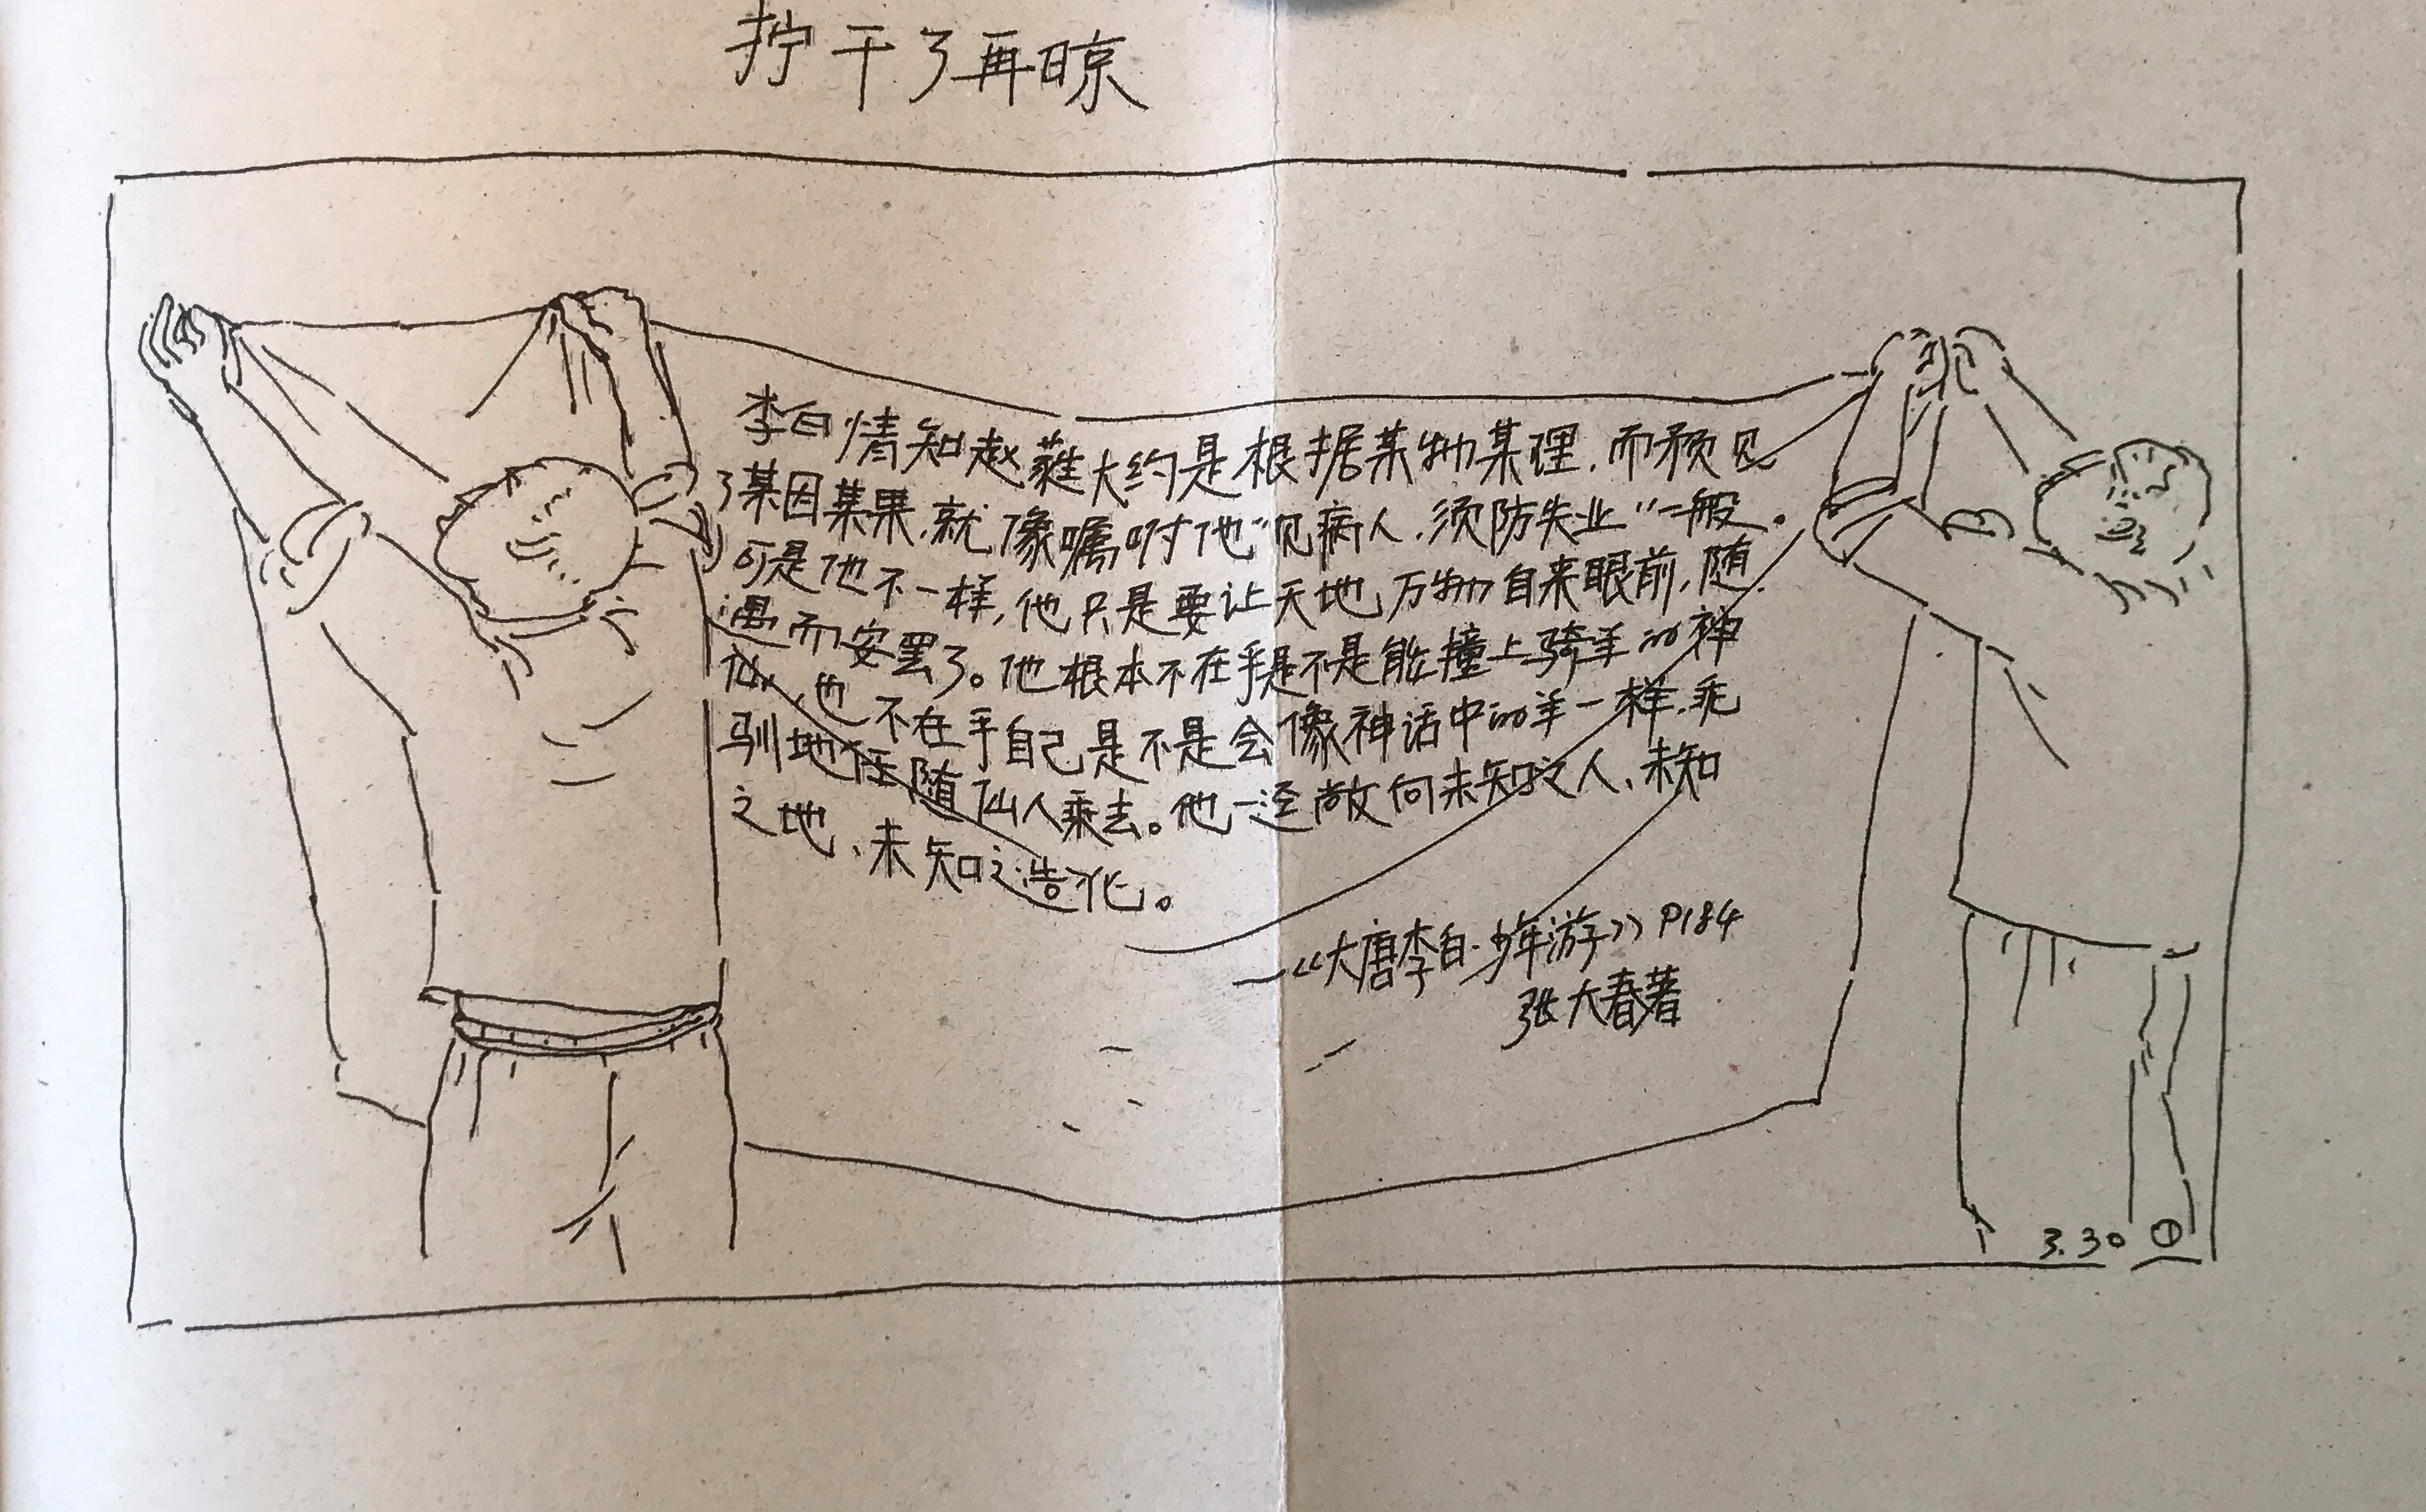 拧干了再晾
李白情知赵蕤大约是根据某物某理,而预见
了某因某果,就像嘱咐他“见病人,须防失业”一般。
可是他不一样,他只是要让天地万物自来眼前,随
遇而安罢了。他根本不在乎是不是能撞上骑羊的神
仙,也不在乎自己是不是会像神话中的羊一样,乖
驯地任随仙人乘去。他一迳敞向未知之人、未知
之地、未知之造化。
—《大唐李白·少年游》P184
张大春著
3.30 ①